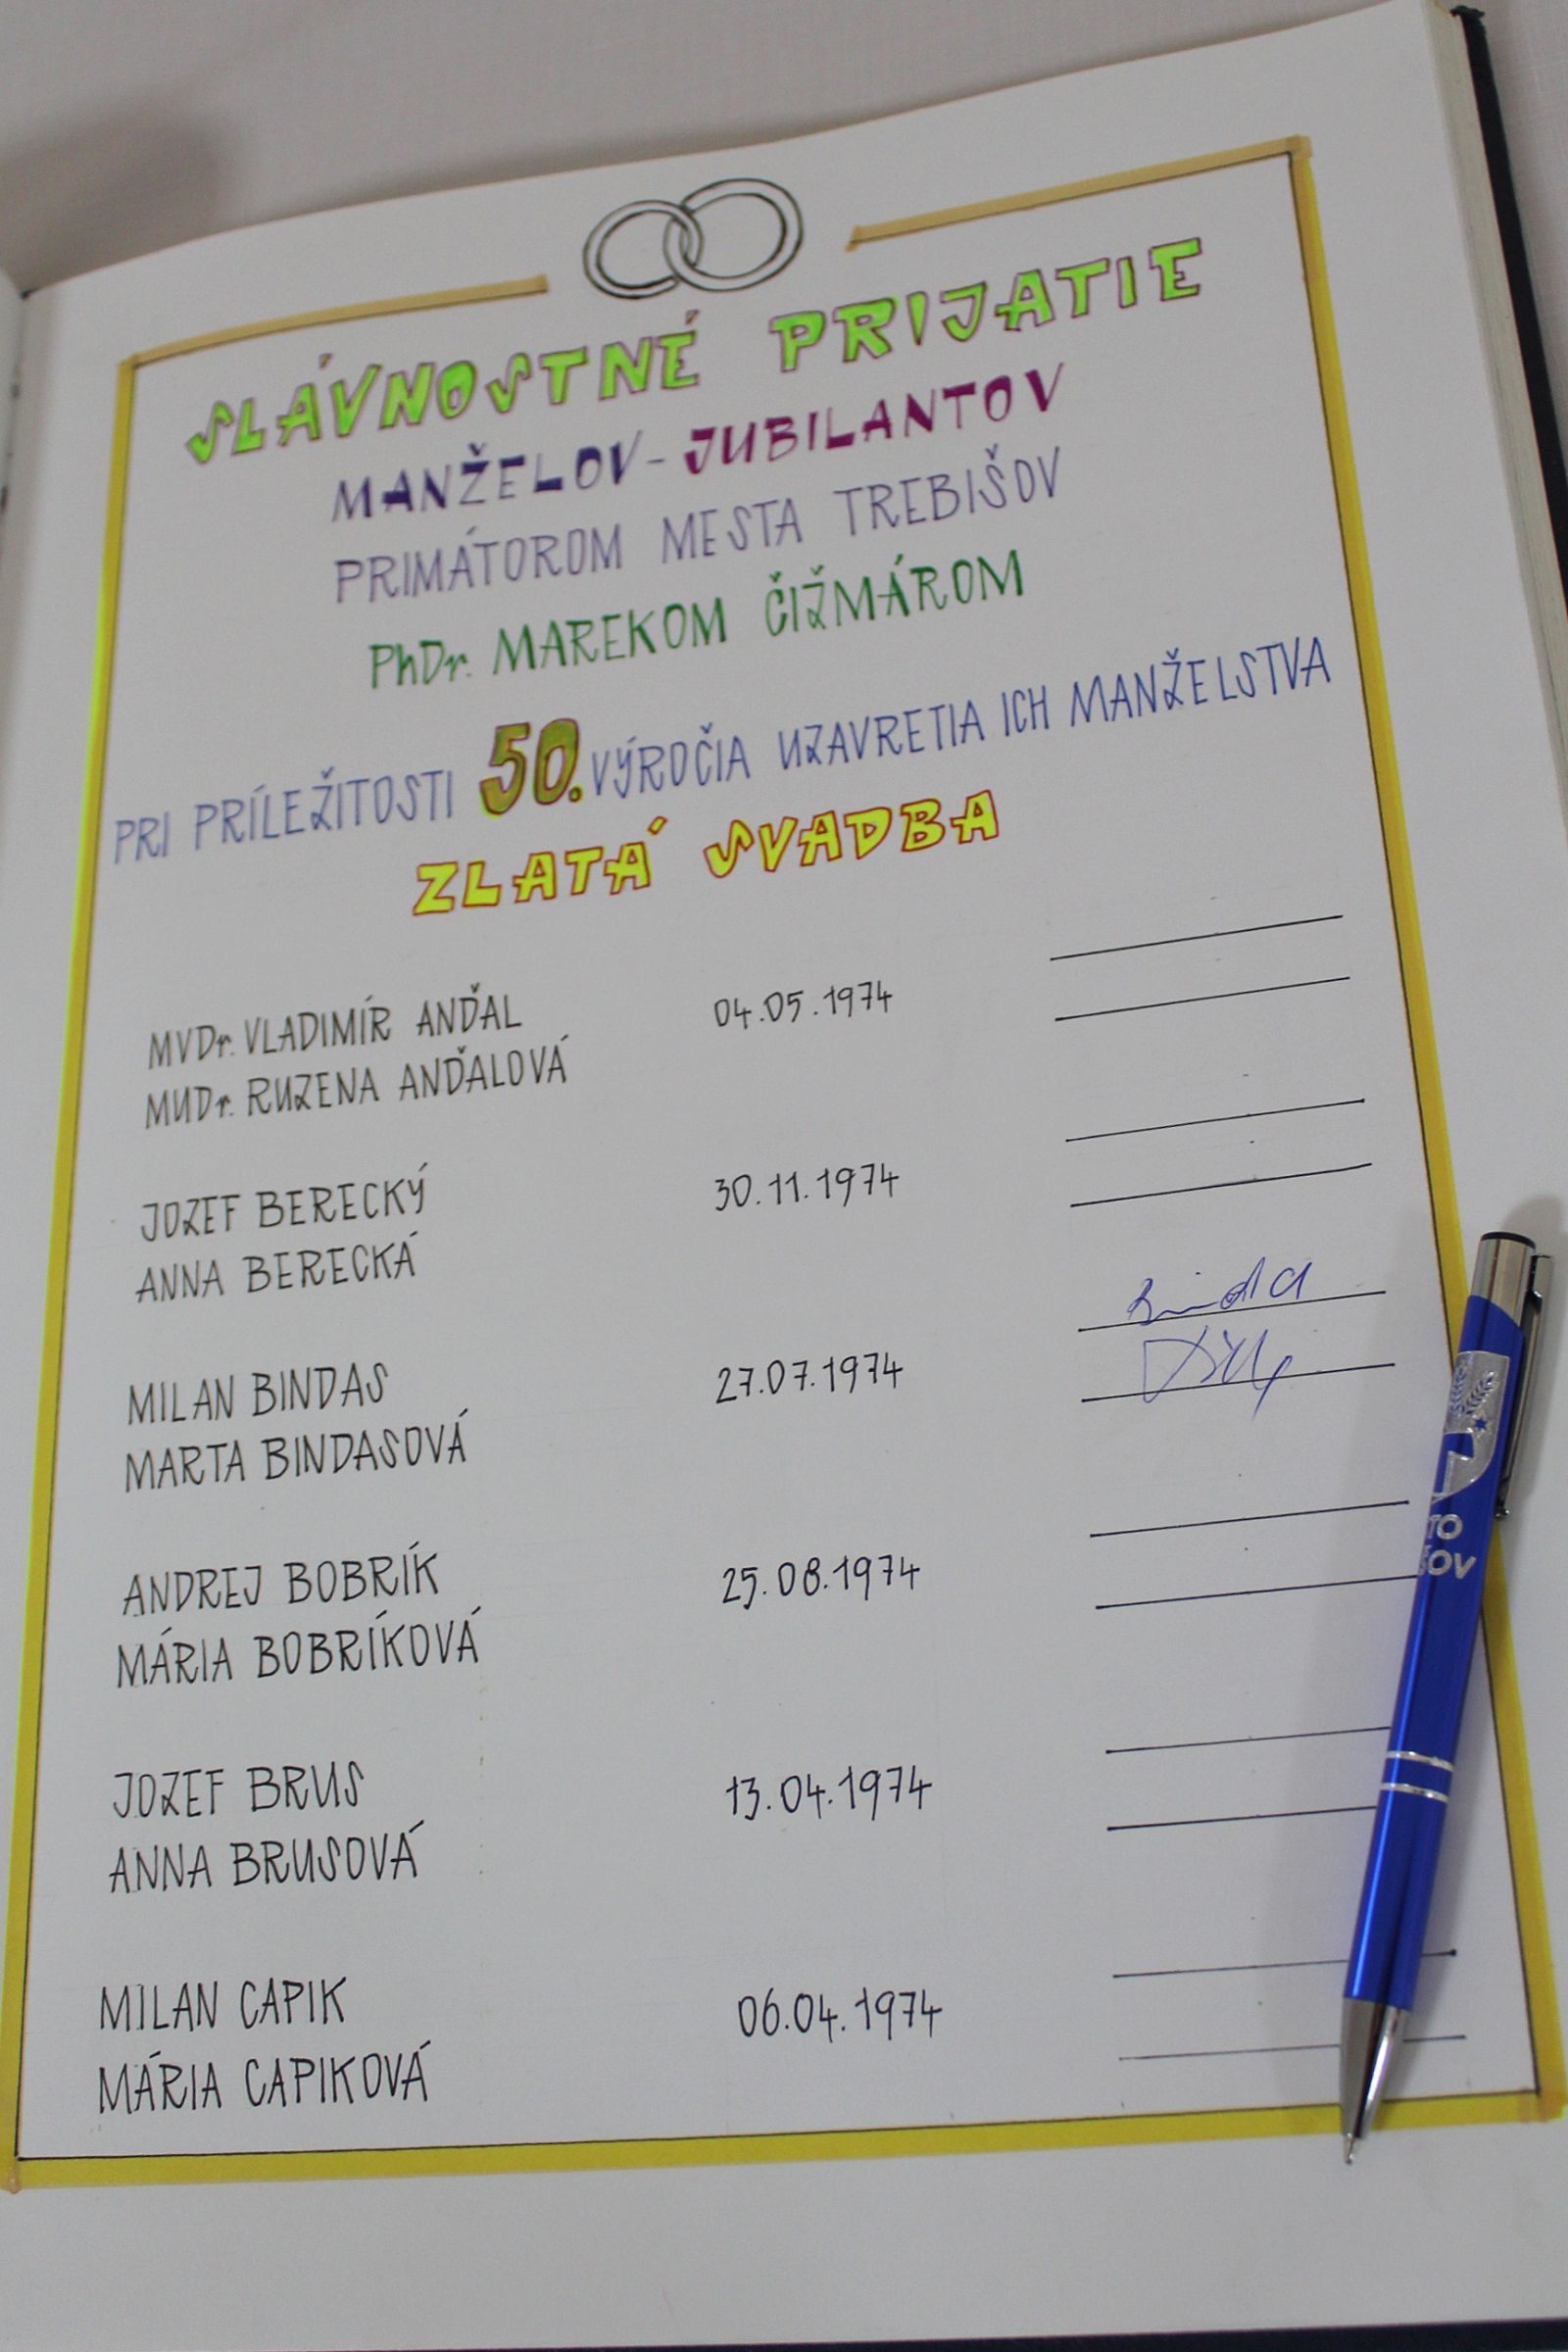 SLÁVNOSTNÉ PRIJATIE
MANŽELOV-JUBILANTOV
PRIMÁTOROM MESTA TREBIŠOV
PhDr. MAREKOM ČIŽMÁROM
PRI PRÍLEŽITOSTI 50. VÝROČIA UZAVRETIA ICH MANŽELSTVA
ZLATÁ SVADBA
MVDr. VLADIMÍR ANĎAL 04.05.1974
MUDr. RUZENA ANĎALOVÁ
JOZEF BERECKÝ 30.11.1974
ANNA BERECKÁ
MILAN BINDAS 27.07.1974
MARTA BINDASOVÁ
ANDREJ BOBRÍK 25.08.1974
MÁRIA BOBRÍKOVÁ
JOZEF BRUS 13.04.1974
ANNA BRUSOVÁ
MILAN CAPIK 06.04.1974
MÁRIA CAPIKOVÁ
TO
ŠOV